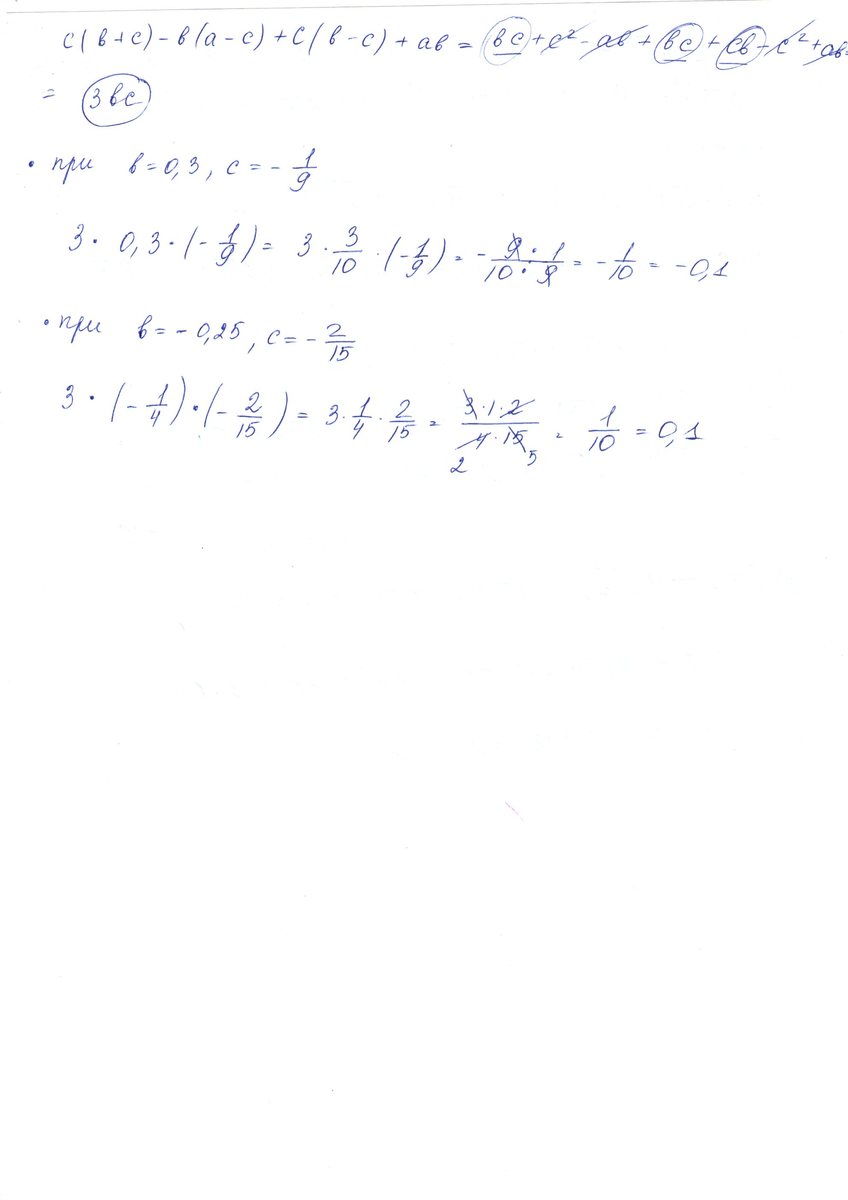 c(в+c)-в(a-c)+c(в-c)+aв = вc+c²-aв+вc+cв-c²+aв=
= 3вc
• при в=0,3, c=-1/9
3·0,3·(-1/9)= 3·3/10·(-1/9)= -9·1/10·9= -1/10= -0,1
• при в=-0,25, c=-2/15
3·(-1/4)·(-2/15)= 3·1/4·2/15= 3·1·2/4·15= 1/10=0,1
2 5